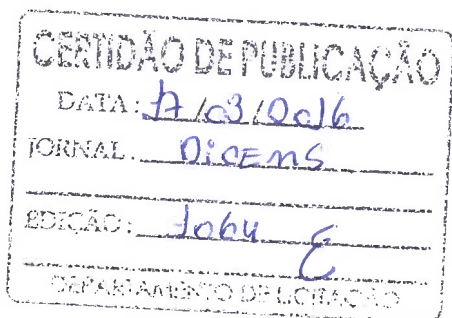 CERTIDÃO DE PUBLICAÇÃO
DATA: 17/03/2016
JORNAL: DiOEMS
EDIÇÃO: 1064
DEPARTAMENTO DE LICITAÇÃO